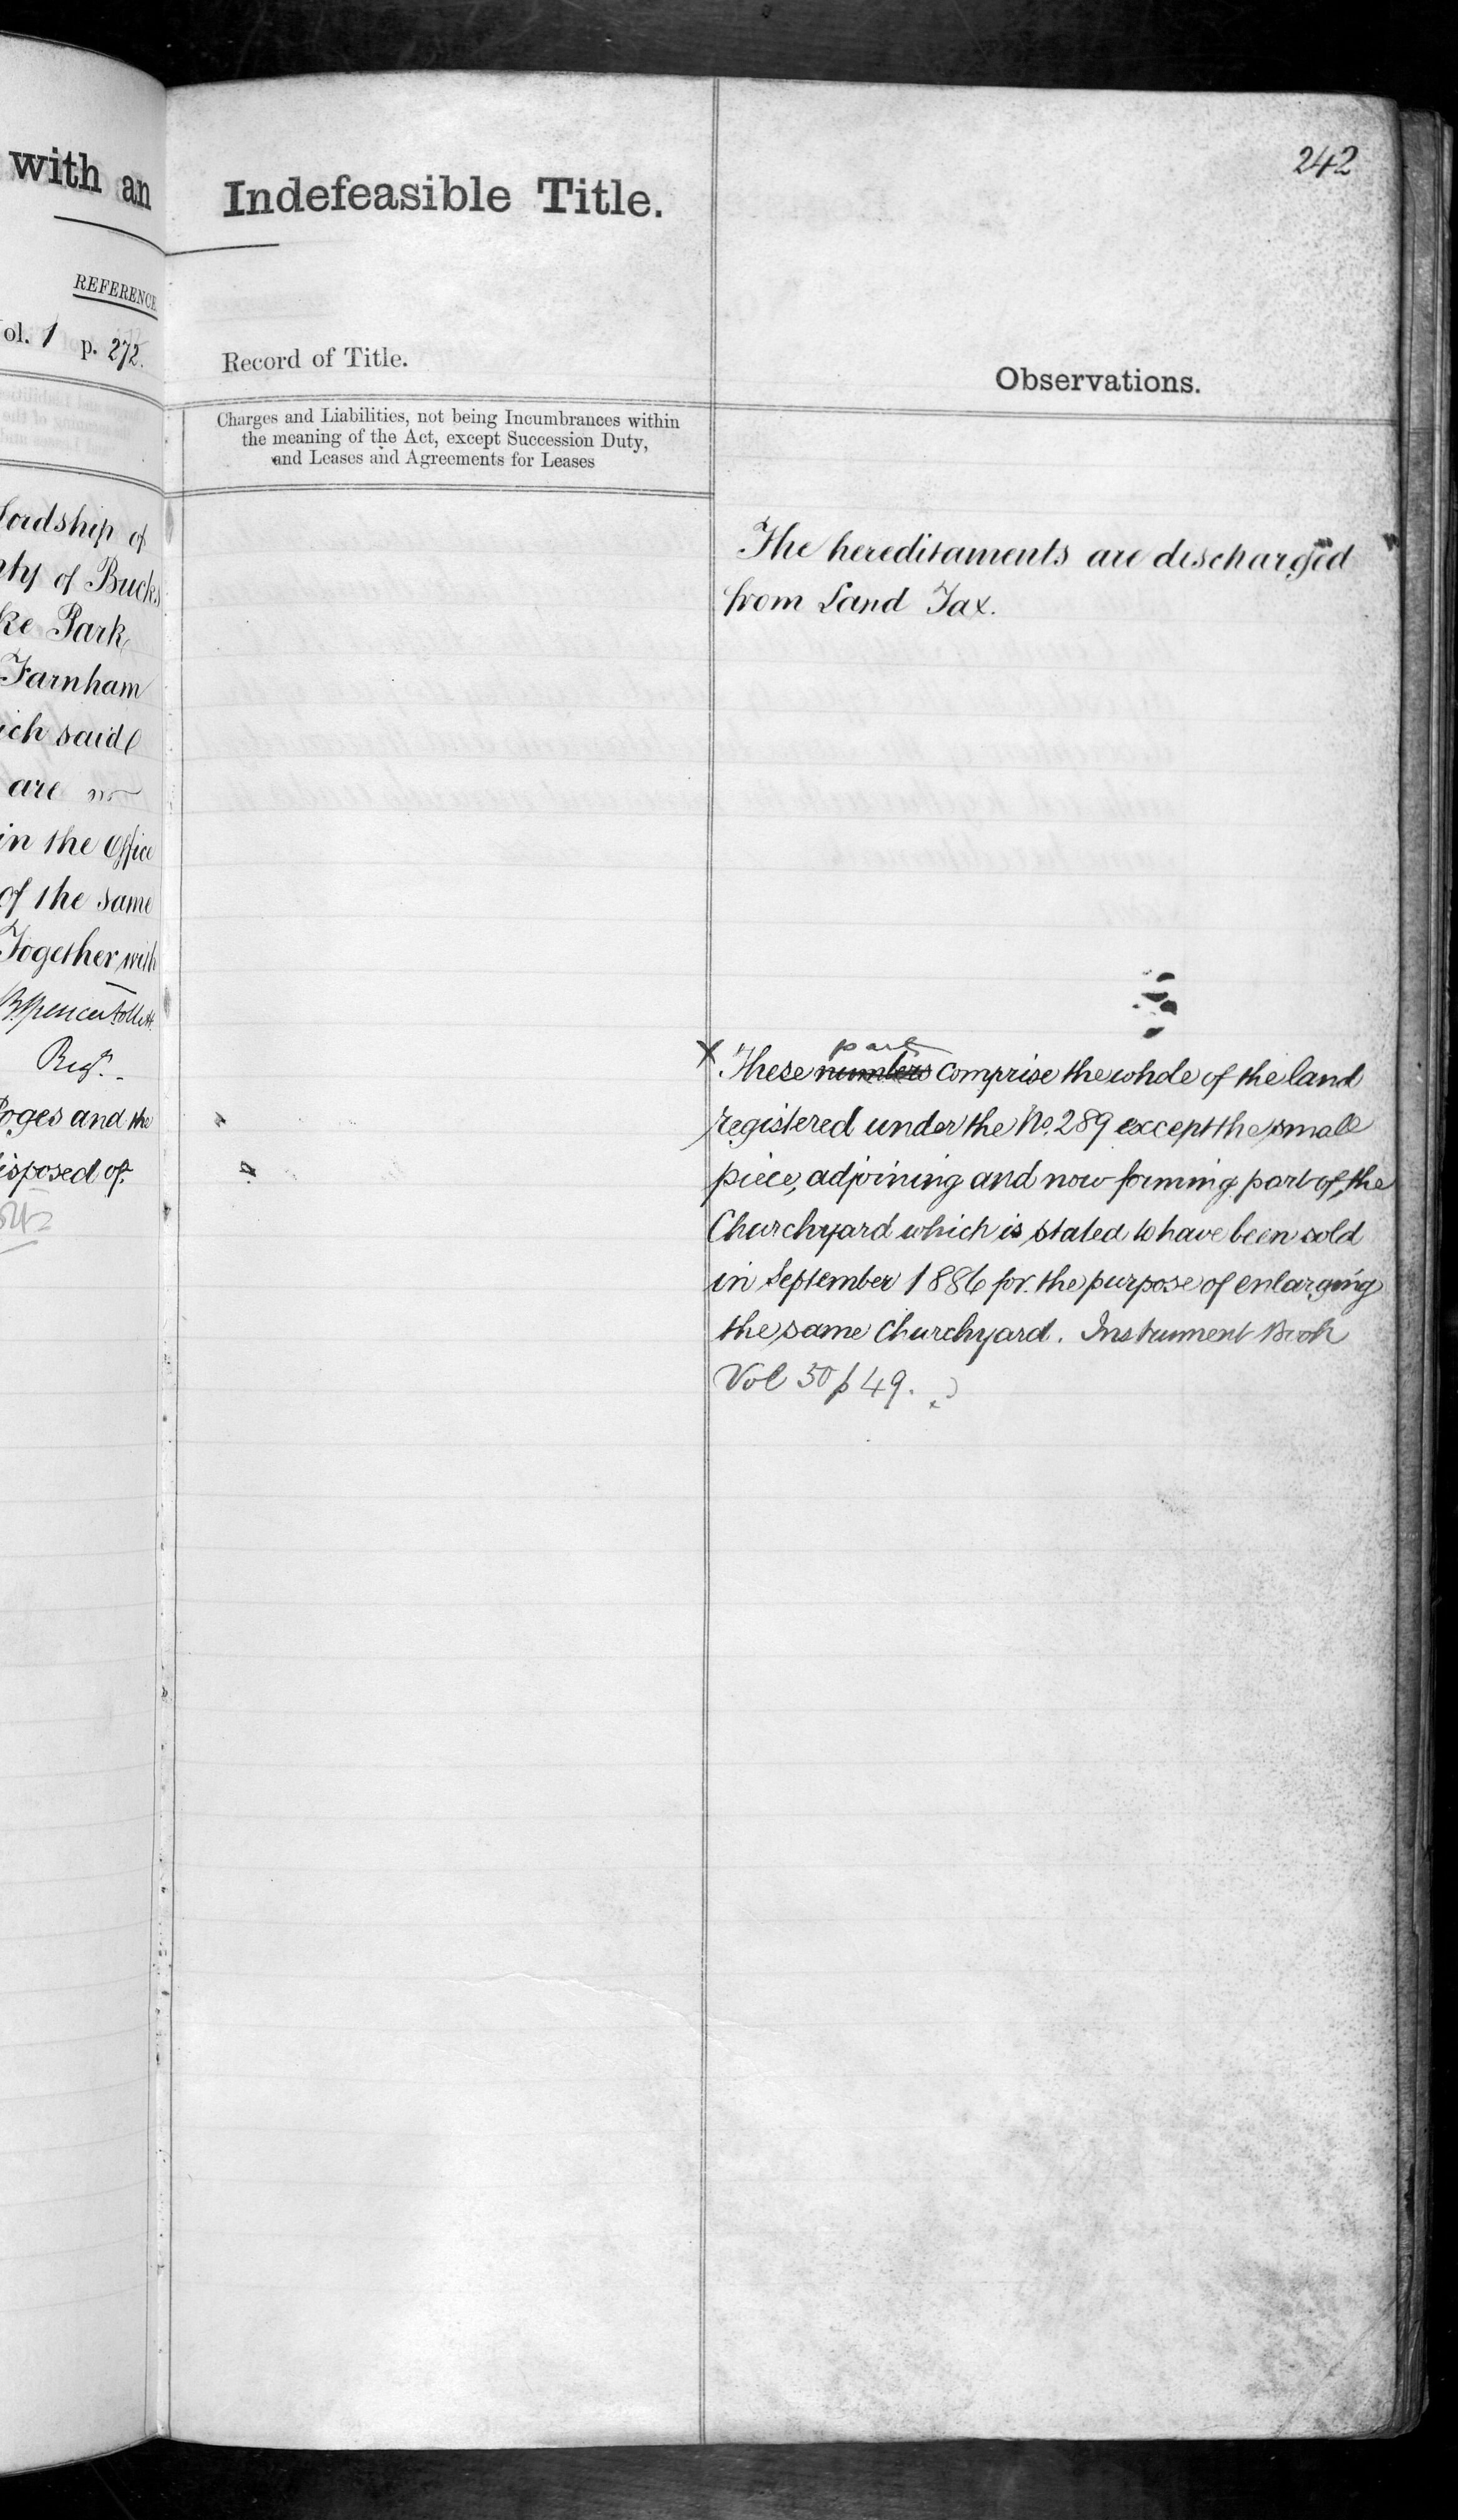 with an
REFERENCE
ol. 1 p. 272.
Lordship of
nty of Bucks
ke Park
Farnham
ich said
are
in the Office
of the same
Together with
Regr.
Poges and the
isposed of.
242
Indefeasible Title.
Record of Title.
Charges and Liabilities, not being Incumbrances within
the meaning of the Act, except Succession Duty,
and Leases and Agreements for Leases
Observations.
The hereditaments are discharged
from Land Tax.
part
X These numbers comprise the whole of the land
registered under the No. 289 except the small
piece, adjoining and now forming part of, the
Churchyard which is stated to have been sold
in September 1886 for the purpose of enlarging
the same Churchyard. Instrument Book
Vol 50 p 49.